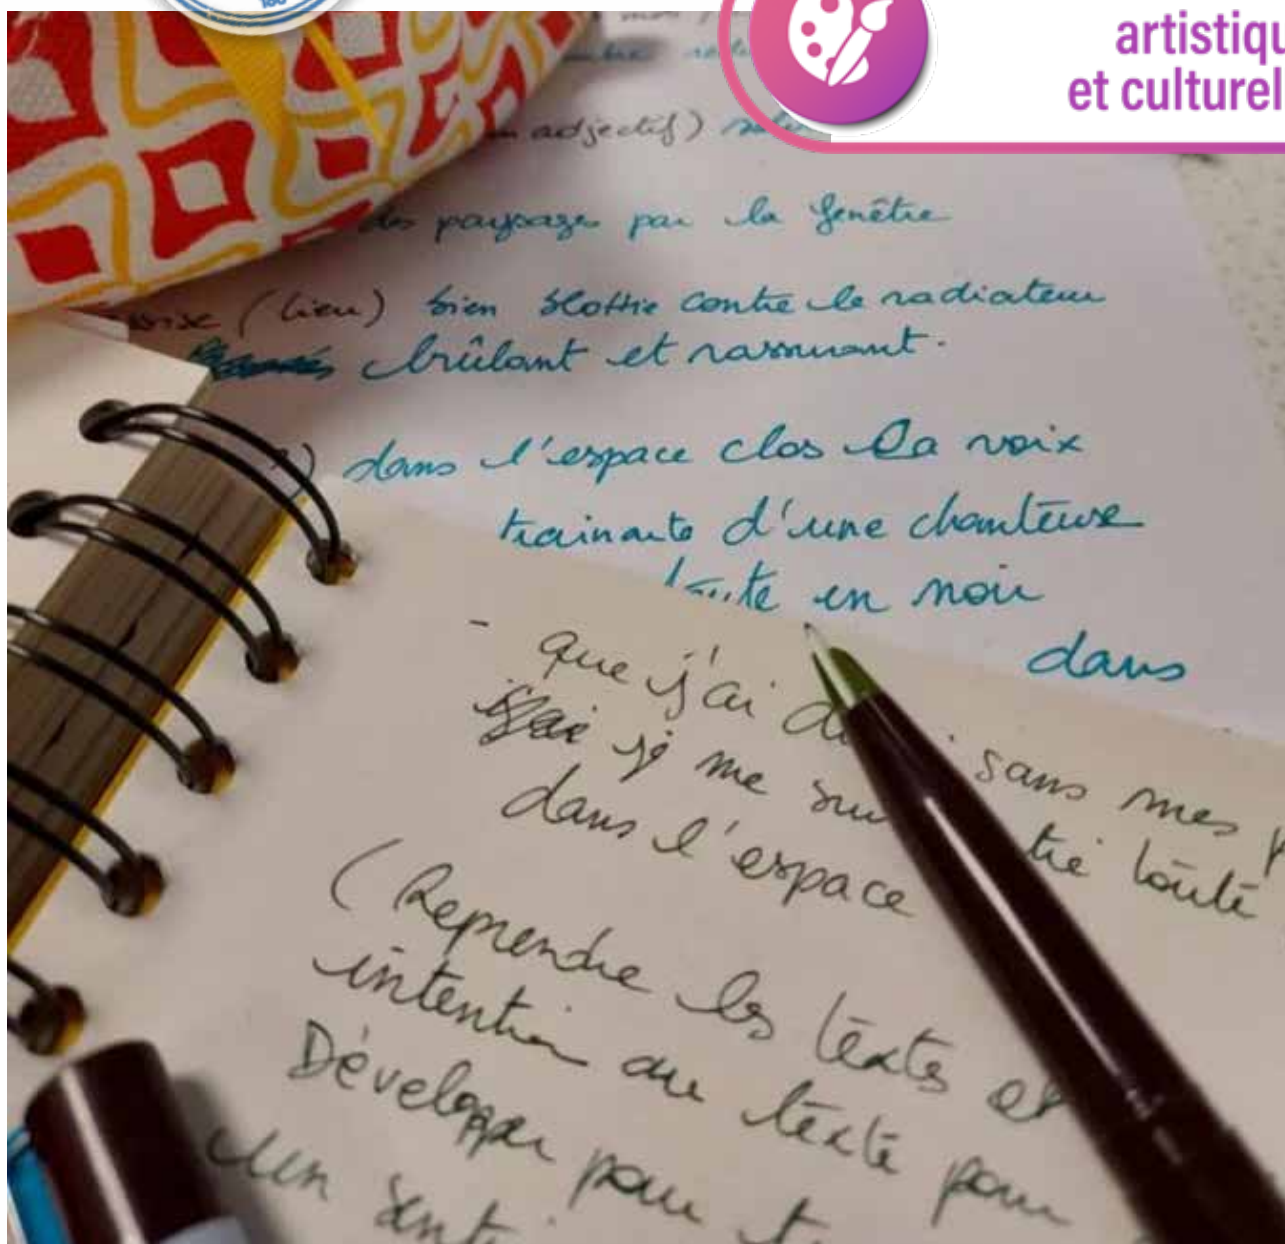 artistiqu
et culturel
adjectif)
des paysages par la fenêtre
(lieu) bien blottie contre le radiateur
brûlant et rassurant.
dans l'espace clos la voix
trainante d'une chanteuse
toute en noir
dans
- que j'ai sans mes
j'ai je me toute
dans l'espace
(Reprendre les textes et
intention au texte pour
Développer pour t
un senti